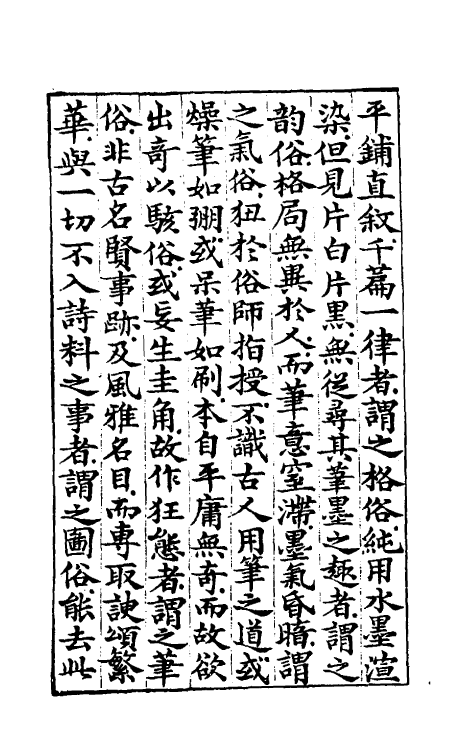 平鋪直敘千篇一律者謂之格俗純用水墨渲
染但見片白片黑無從尋其筆墨之趣者謂之
韵俗格局無異於人而筆意窒滯墨氣昏暗謂
之氣俗狃於俗師指授不識古人用筆之道或
燥筆如弸或呆筆如刷本自平庸無奇而故欲
出奇以駭俗或妄生圭角故作狂態者謂之筆
俗非古名賢事跡及風雅名目而專取諛頌繁
華與一切不入詩料之事者謂之圖俗能去此